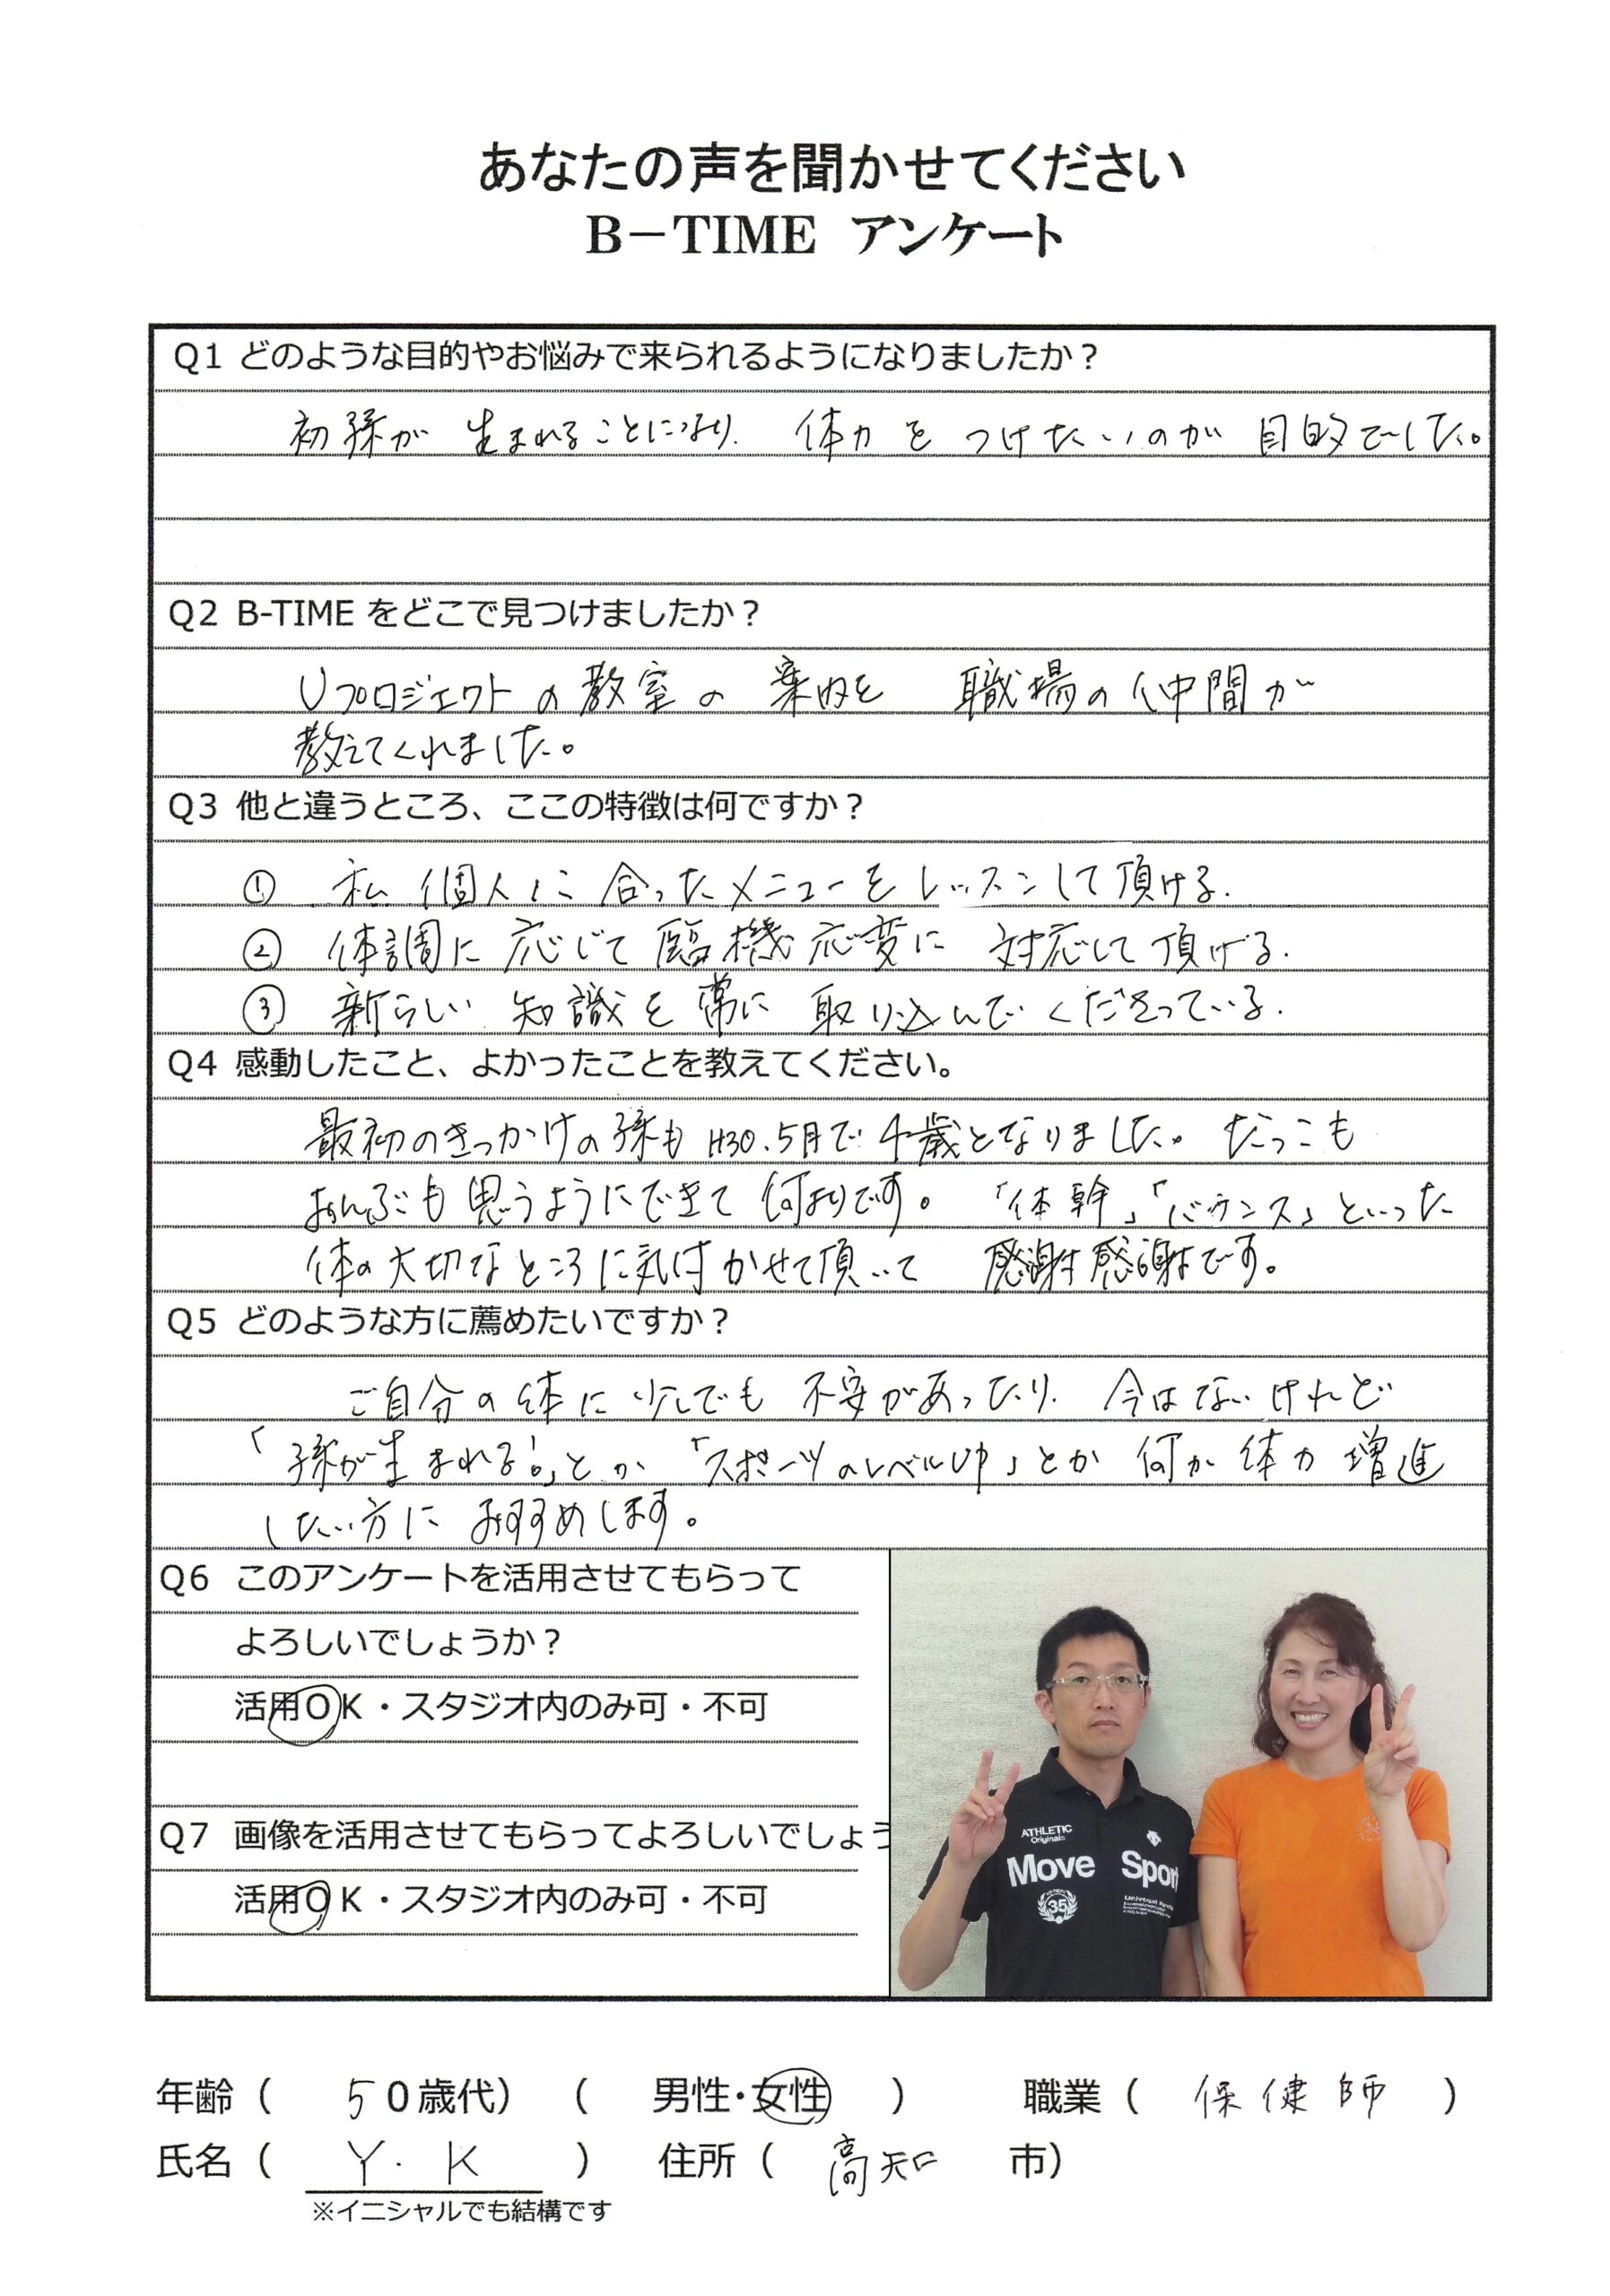 あなたの声を聞かせてください
B－TIME アンケート
Q1 どのような目的やお悩みで来られるようになりましたか？
初孫が 生まれることになり. 体力を つけたいのが 目的でした。
Q2 B-TIME をどこで見つけましたか？
Uプロジェクトの教室の 案内を 職場の仲間が
教えてくれました。
Q3 他と違うところ、ここの特徴は何ですか？
① 私 個人に 合ったメニューを レッスンして頂ける.
② 体調に 応じて 臨機応変に 対応して頂ける.
③ 新らしい 知識を 常に 取り込んで くださっている.
Q4 感動したこと、よかったことを教えてください。
最初のきっかけの孫も H30.5月で 4歳となりました。 だっこも
おんぶも 思うようにできて 何よりです。 「体幹」「バウンス」といった
体の大切なところに気付かせて頂いて 感謝感謝です。
Q5 どのような方に薦めたいですか？
ご自分の体に 少しでも 不安があったり. 今はないけれど
「孫が生まれる!」とか 「スポーツのレベルUP」とか 何か 体力 増進
したい方に おすすめします。
Q6 このアンケートを活用させてもらって
よろしいでしょうか？
活用OK・スタジオ内のみ可・不可
Q7 画像を活用させてもらってよろしいでしょう
活用OK・スタジオ内のみ可・不可
ATHLETIC
Originals
Move Spor
35
年齢（ 50歳代） （ 男性・女性 ） 職業（ 保健師 ）
氏名（ Y. K ） 住所（ 高知 市）
※イニシャルでも結構です